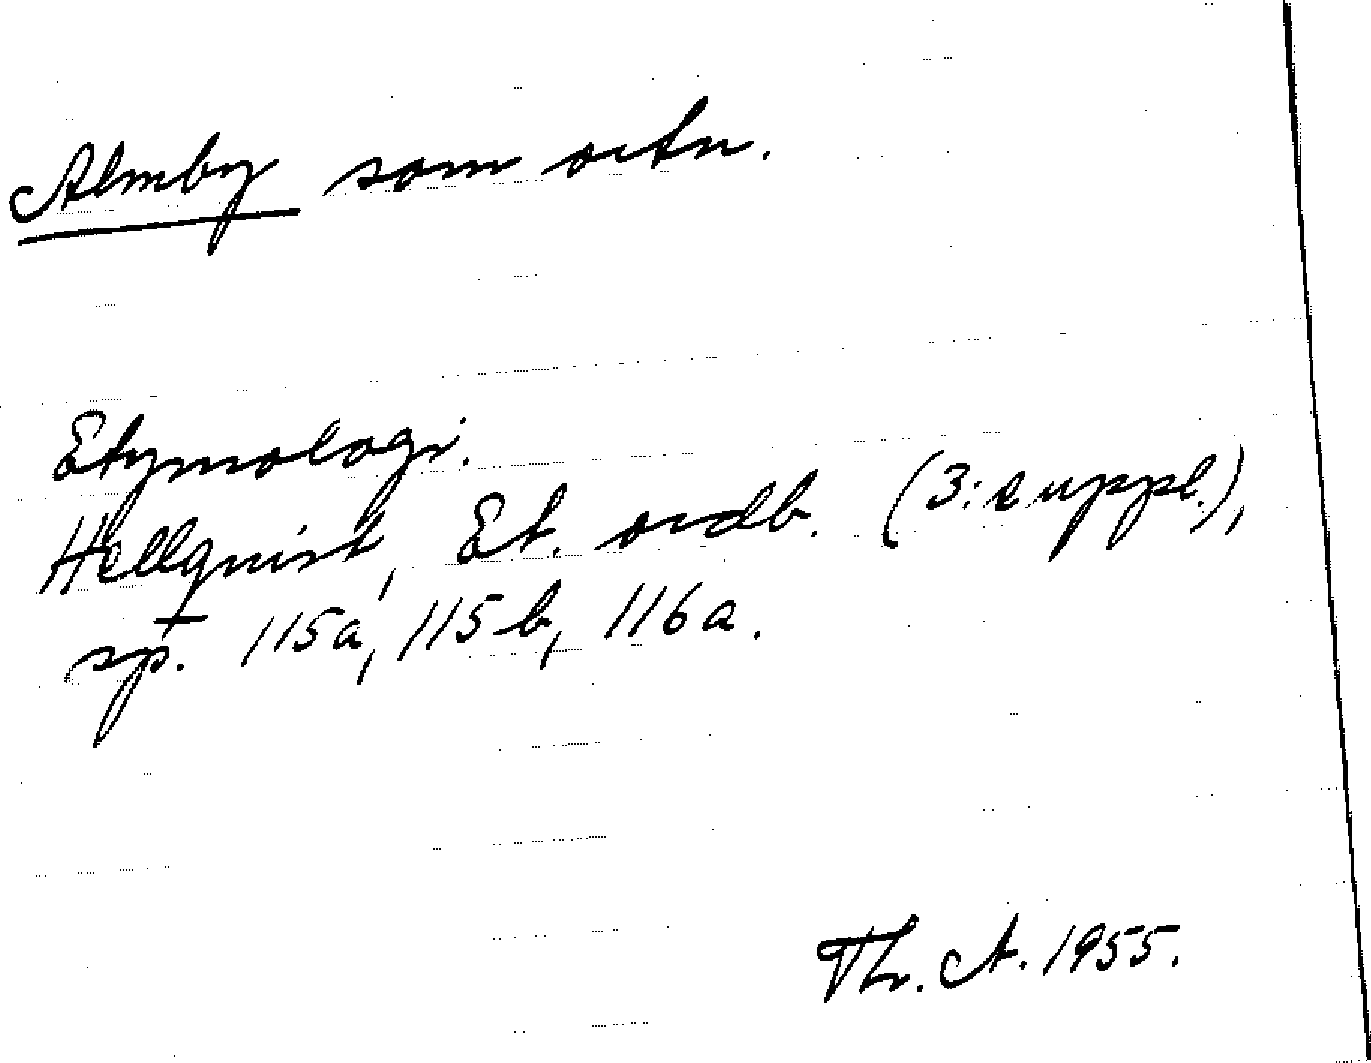 Almby som ortn.
Etymologi.
Hellquist, Et. ordb. (3: suppl.),
sp. 115a, 115b, 116a.
Th. A. 1955.